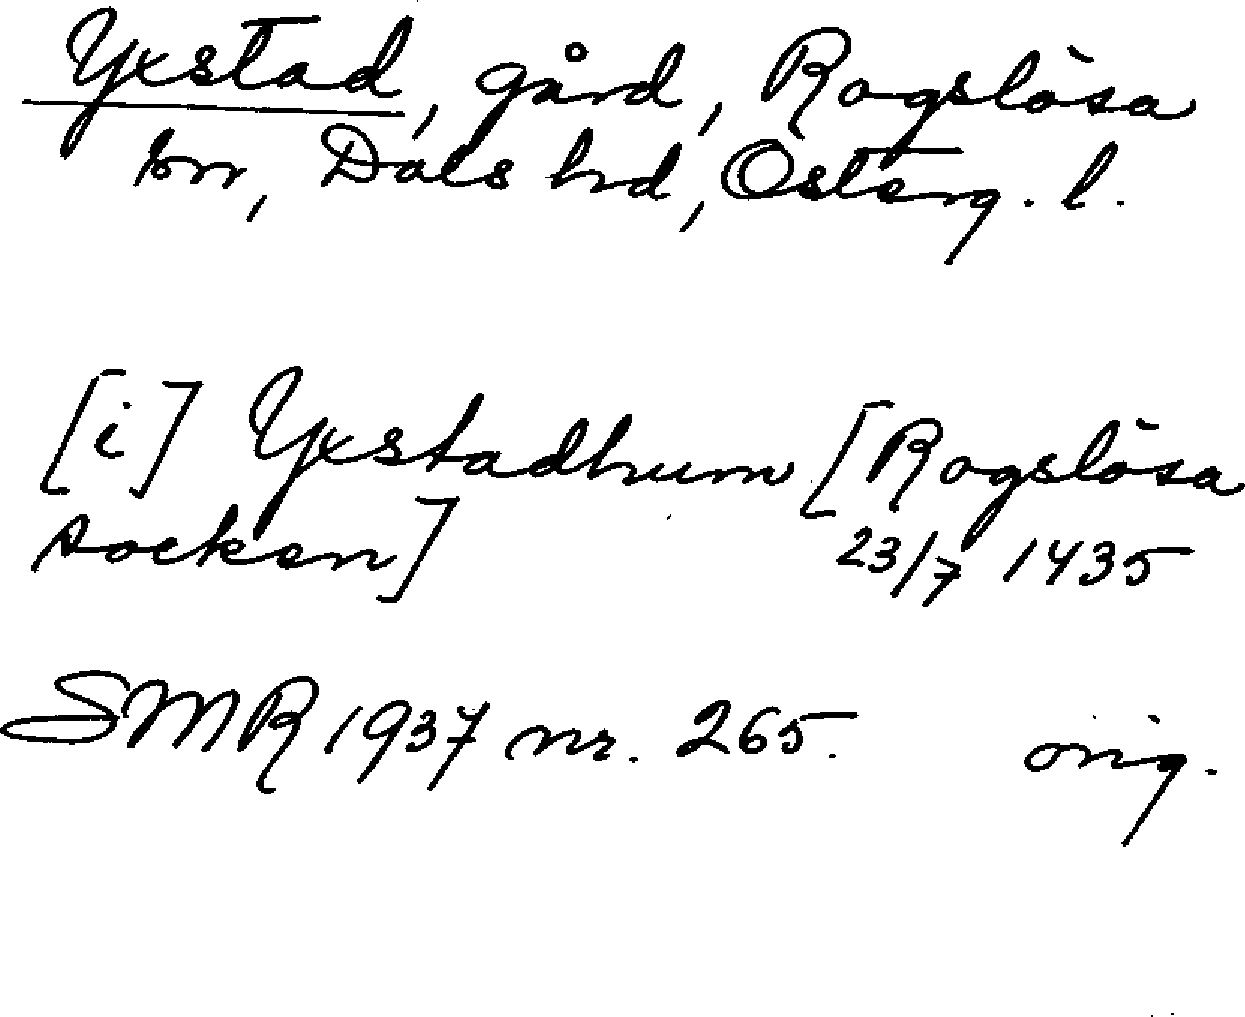 Yxstad, gård, Rogslösa
sn, Dals hrd, Österg. l.
[i] Yxstadhum [Rogslösa
socken] 23/7 1435
SMR 1937 nr. 265. orig.